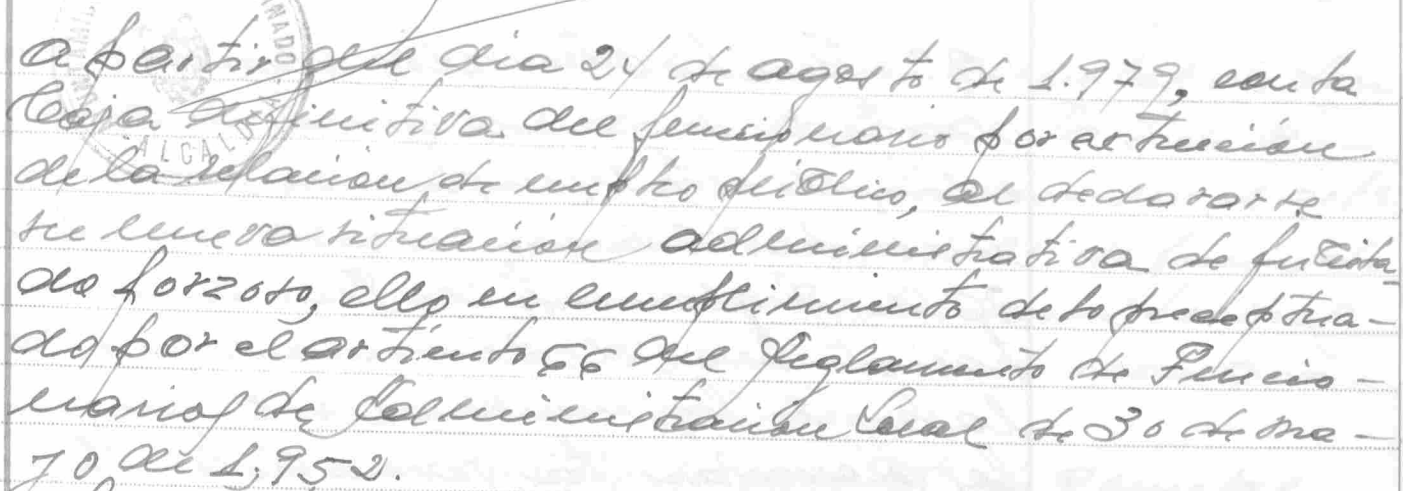 a partir del dia 24 de agosto de 1.979, con la
baja definitiva del funcionario por extinción
de la relación de empleo público, al declararse
su nueva situación administrativa de jubila-
do forzoso, ello en cumplimiento de lo preceptua-
do por el artículo 66 del Reglamento de Funcio-
narios de Administración Local de 30 de ma-
yo de 1.952.
ALCALDIA